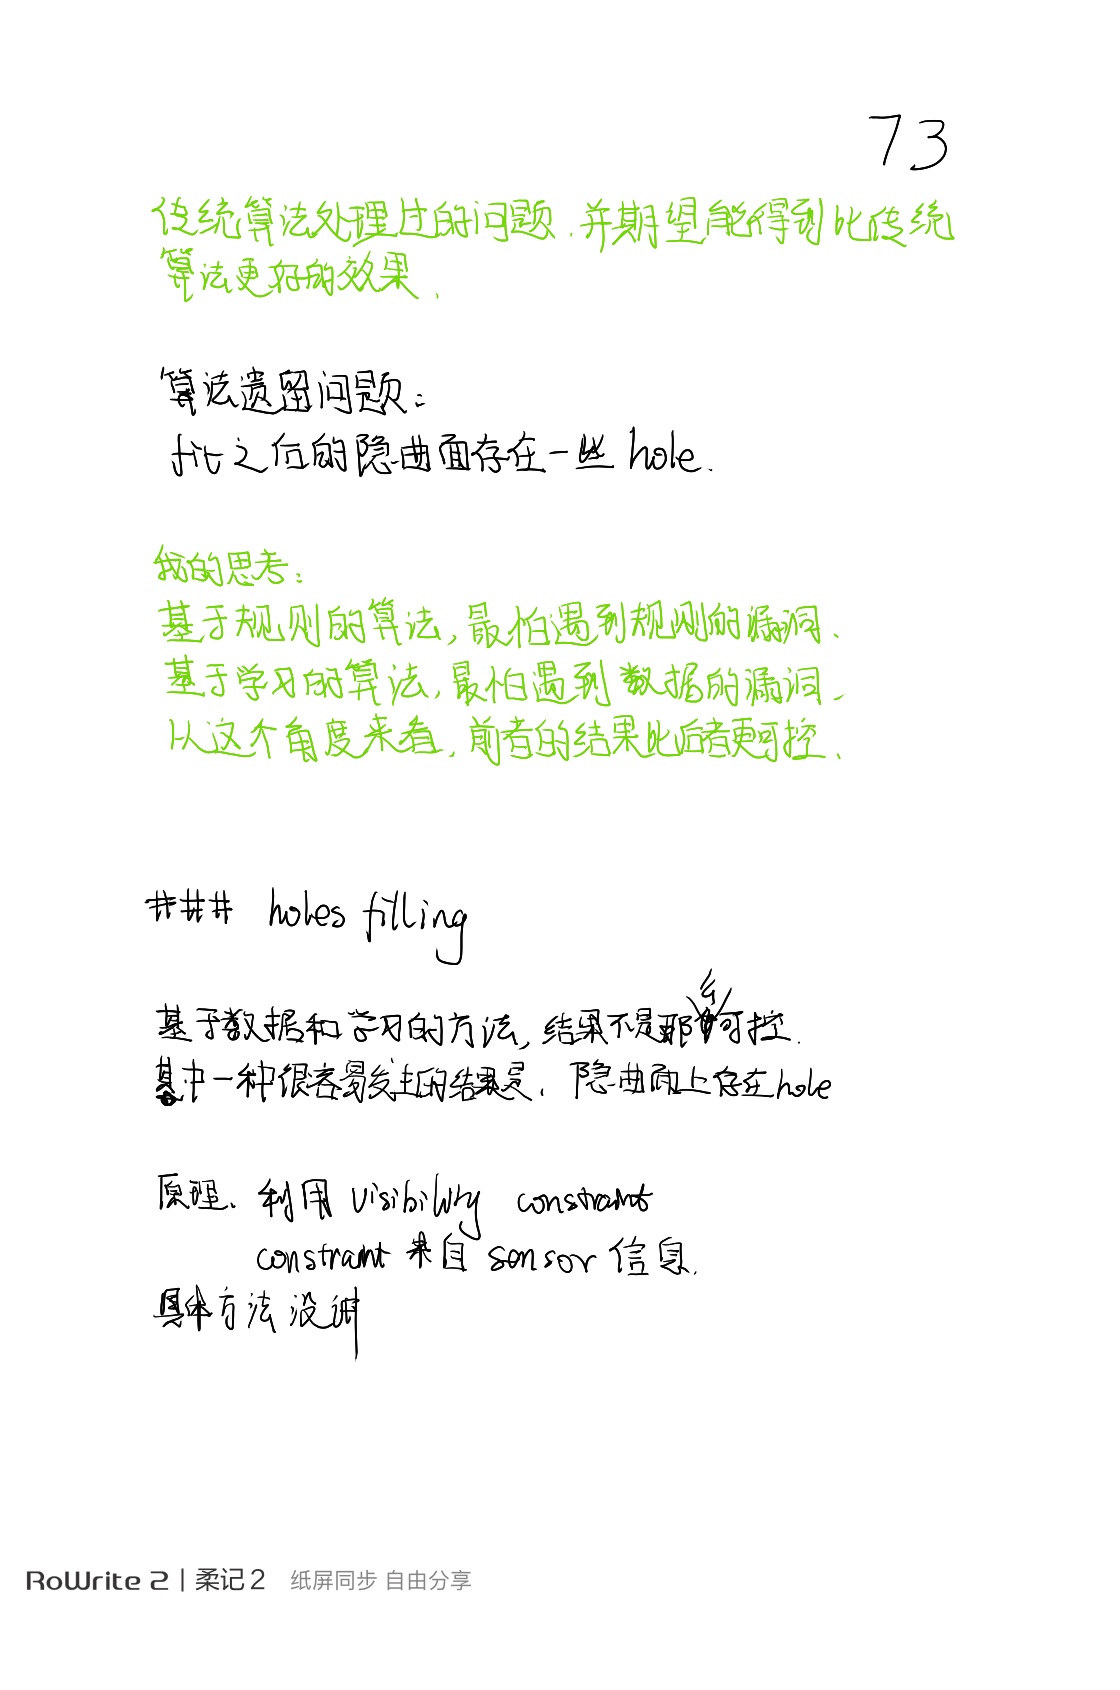 73
传统算法处理过的问题.并期望能得到比传统
算法更好的效果.
算法遗留问题:
fit之后的隐曲面存在一些hole.
我的思考:
基于规则的算法,最怕遇到规则的漏洞.
基于学习的算法,最怕遇到数据的漏洞.
从这个角度来看,前者的结果比后者更可控.
### holes filling
基于数据和学习的方法,结果不是那么可控.
其中一种很容易发生的结果是.隐曲面上存在hole
原理.利用visibility constraint
constraint来自sensor信息.
具体方法没讲
RoWrite 2 | 柔记2 纸屏同步 自由分享